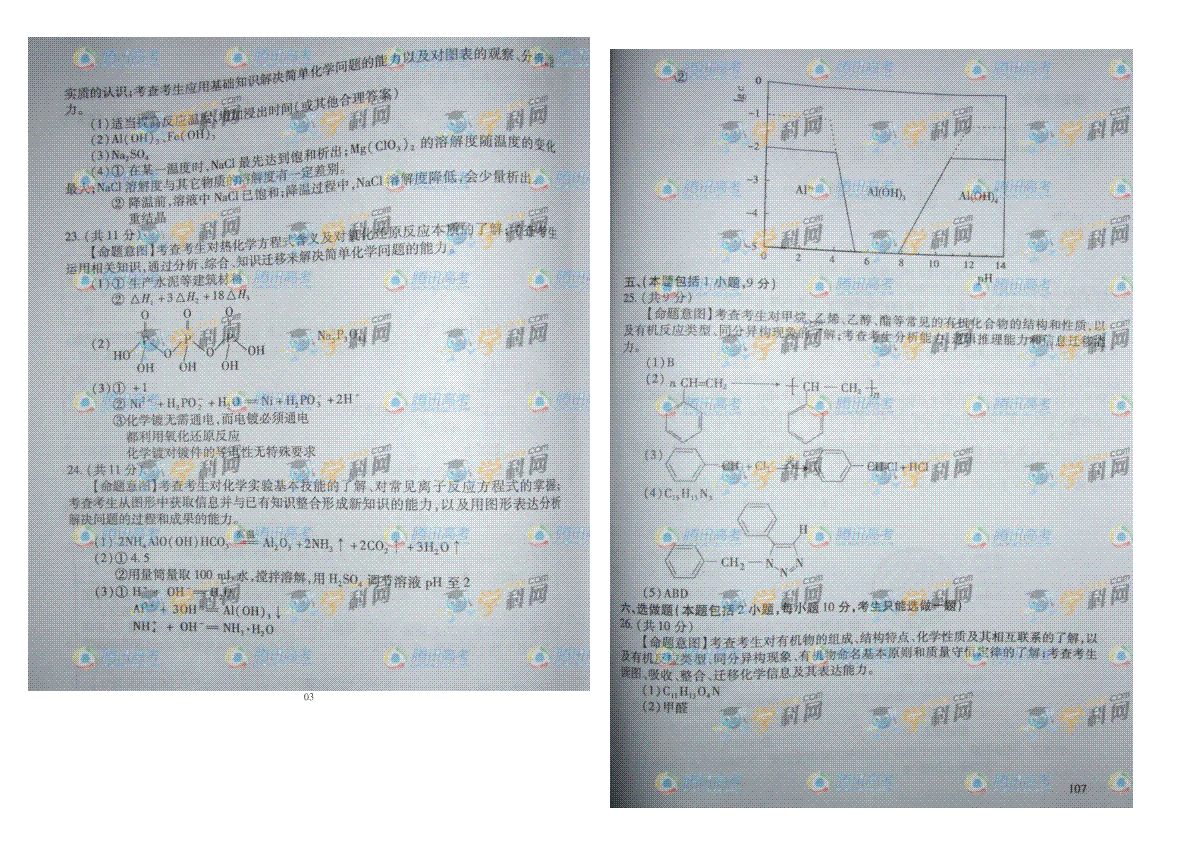 实质的认识;考查考生应用基础知识解决简单化学问题的能力以及对图表的观察、分析能
力。
(1)适当提高反应温度、增加浸出时间(或其他合理答案)
(2)Al(OH)₃、Fe(OH)₃
(3)Na₂SO₄
(4)① 在某一温度时,NaCl 最先达到饱和析出;Mg(ClO₃)₂ 的溶解度随温度的变化
最大;NaCl 溶解度与其它物质的溶解度有一定差别。
② 降温前,溶液中 NaCl 已饱和;降温过程中,NaCl 溶解度降低,会少量析出
重结晶
23. (共 11 分)
【命题意图】考查考生对热化学方程式含义及对氧化还原反应本质的了解;考查考生
运用相关知识,通过分析、综合、知识迁移来解决简单化学问题的能力。
(1)① 生产水泥等建筑材料
② △H₁ +3△H₂ +18△H₃
O O O
(2) HO P O P O P OH
OH OH OH
(3)① +1
② Ni²⁺ + H₂PO₂⁻ + H₂O ═ Ni + H₂PO₃⁻ + 2H⁺
③化学镀无需通电,而电镀必须通电
都利用氧化还原反应
化学镀对镀件的导电性无特殊要求
24. (共 11 分)
【命题意图】考查考生对化学实验基本技能的了解、对常见离子反应方程式的掌握;
考查考生从图形中获取信息并与已有知识整合形成新知识的能力,以及用图形表达分析
解决问题的过程和成果的能力。
(1) 2NH₄AlO(OH)HCO₃ ═ Al₂O₃ +2NH₃↑ +2CO₂↑ +3H₂O↑
(2)① 4.5
②用量筒量取 100 mL 水,搅拌溶解,用 H₂SO₄ 调节溶液 pH 至 2
(3)① H⁺ + OH⁻ ═ H₂O
Al³⁺ + 3OH⁻ ═ Al(OH)₃↓
NH₄⁺ + OH⁻ ═ NH₃·H₂O
03
②
lg c
0
-1
-2
-3
-4
-5
Al³⁺ Al(OH)₃ Al(OH)₄⁻
0 2 4 6 8 10 12 14
pH
五、(本题包括 1 小题,9 分)
25. (共 9 分)
【命题意图】考查考生对甲烷、乙烯、乙醇、酯等常见的有机化合物的结构和性质,以
及有机反应类型、同分异构现象的了解;考查考生分析能力、逻辑推理能力和信息迁移能
力。
(1)B
(2) n CH=CH₂ → [ CH — CH₂ ]n
(3) CH₃ + Cl₂ → CH₂Cl + HCl
(4)C₁₅H₁₃N₃
H
CH₂ — N N N
(5)ABD
六、选做题(本题包括 2 小题,每小题 10 分,考生只能选做一题)
26. (共 10 分)
【命题意图】考查考生对有机物的组成、结构特点、化学性质及其相互联系的了解,以
及有机反应类型、同分异构现象、有机物命名基本原则和质量守恒定律的了解;考查考生
读图、吸收、整合、迁移化学信息及其表达能力。
(1)C₁₁H₁₃O₄N
(2)甲醛
107
腾讯高考
学科网
com